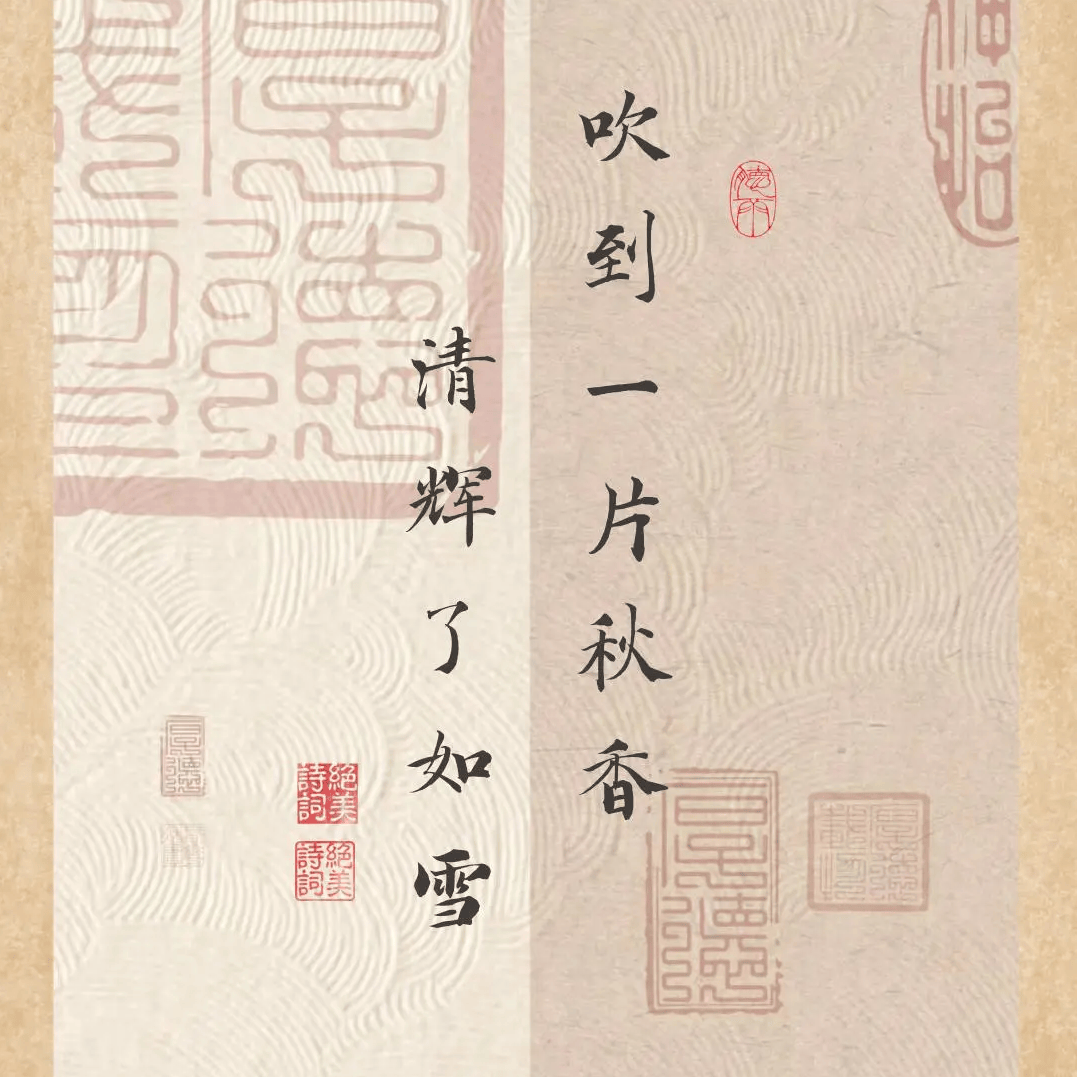 吹到一片秋香
清辉了如雪
聽雨
絕美詩詞
絕美詩詞